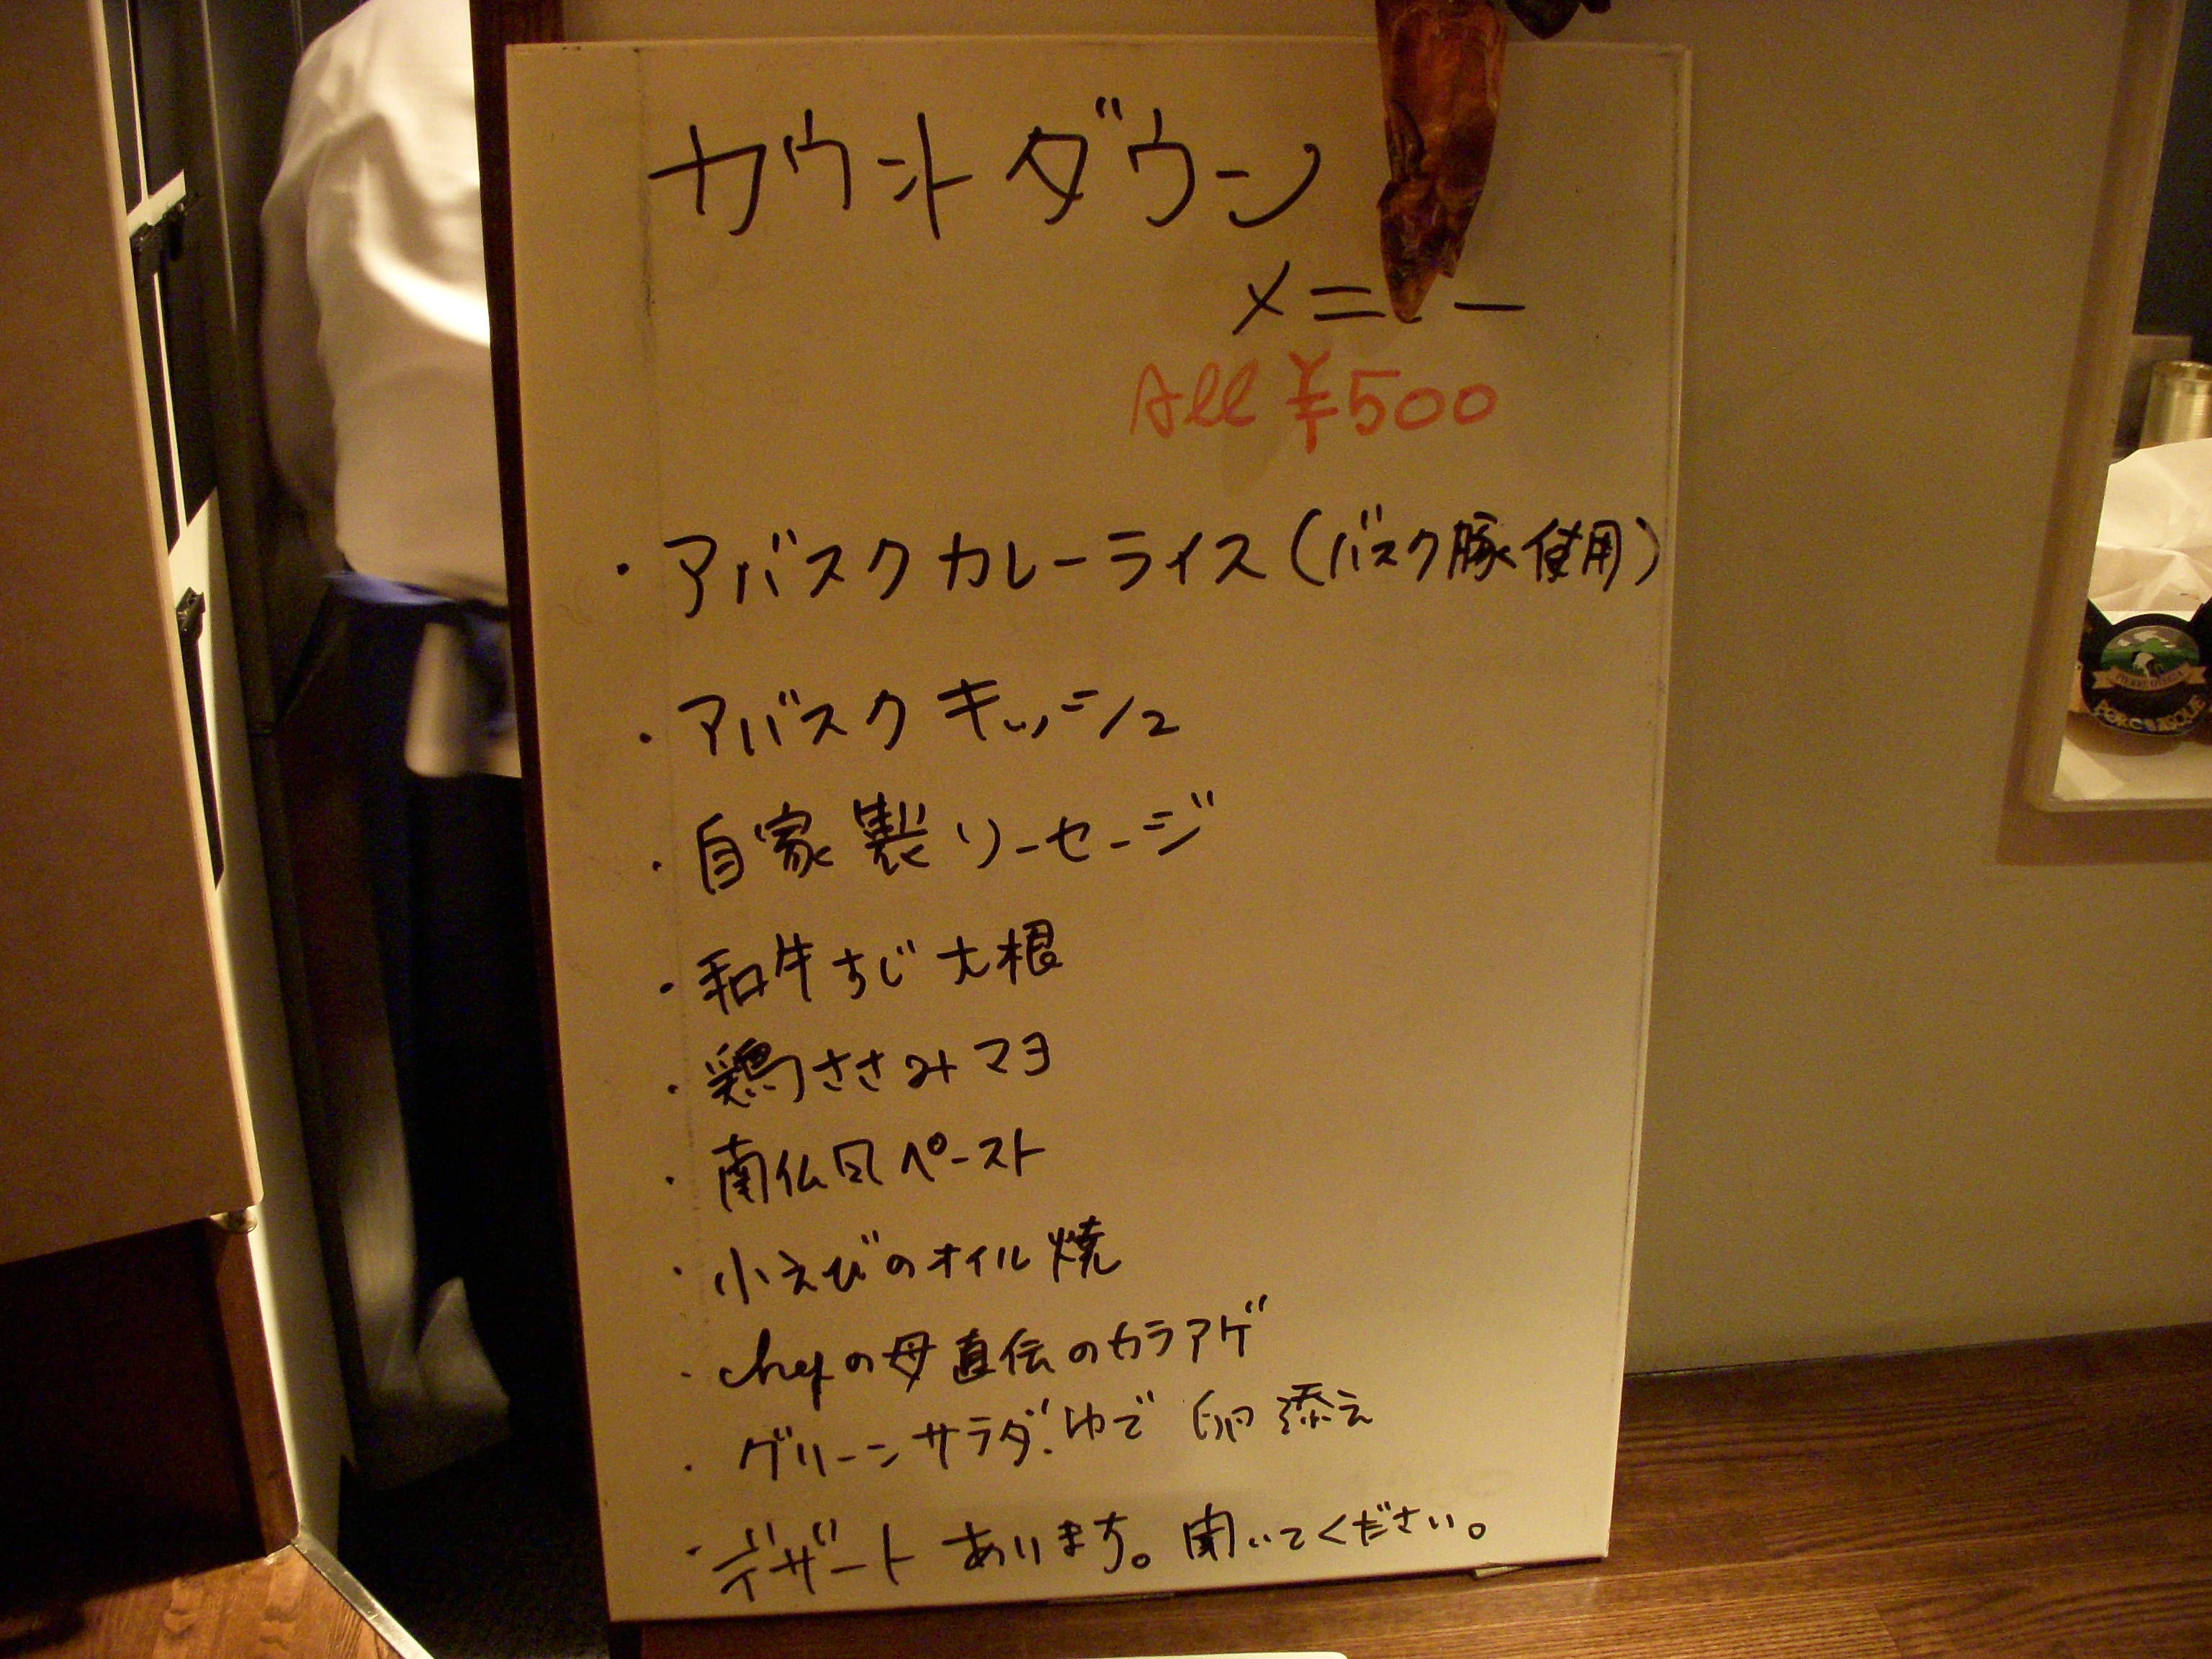 カウントダウン
メニュー
All ¥500
・アバスクカレーライス（バスク豚使用）
・アバスクキッシュ
・自家製ソーセージ
・和牛すじ大根
・鶏ささみマヨ
・南仏風ペースト
・小えびのオイル焼
・chefの母直伝のカラアゲ
・グリーンサラダ.ゆで卵添え
・デザートあります。聞いてください。
PORC BASQUE